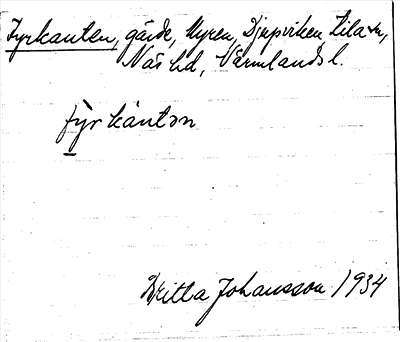 Fyrkanten, gärde, Myren, Djupviken, Lila sn,
Näs hd, Värmlands l.
fyrkantən
Britta Johansson 1934